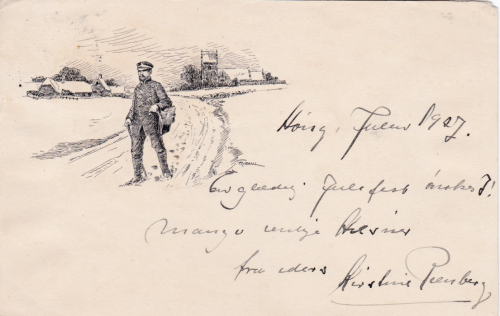 Julen 1927.
En glædelig Julefest ønskes I!
mange venlige Hilsner
fra eders Kirstine